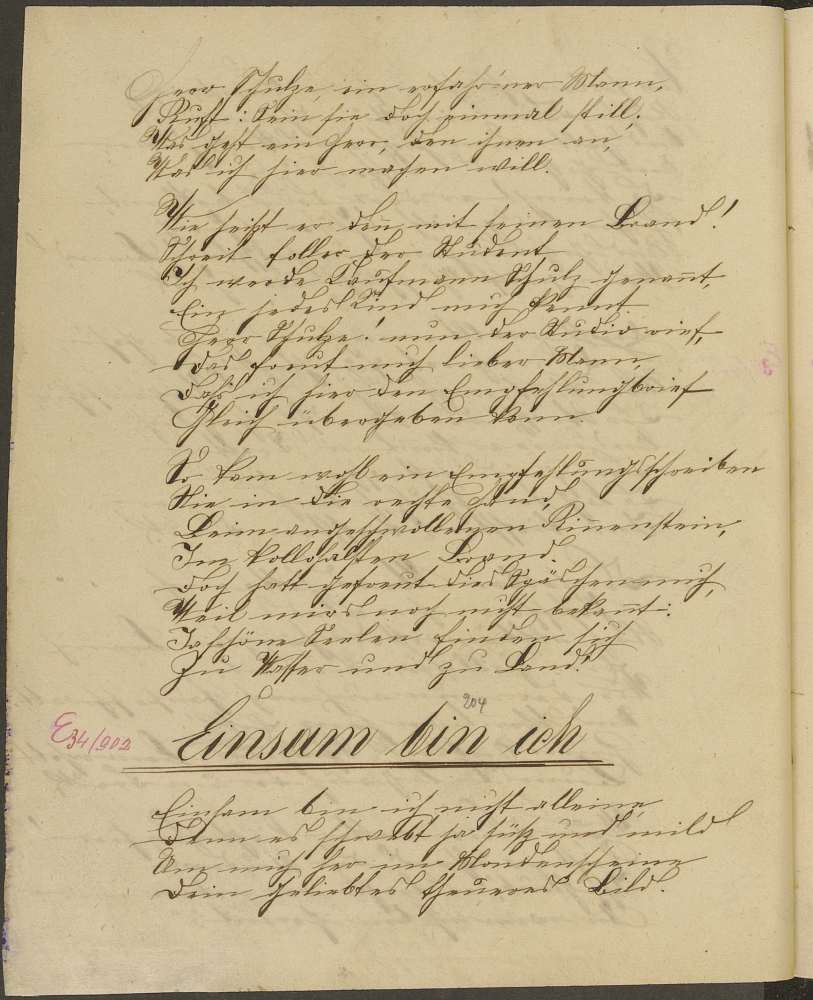 Herr Schulze, ein erfahr'ner Mann,
Ruft: Sein sie doch einmal still,
Was geht ein Herr, den ihnen an,
Was ich hier machen will.
Wie heißt er den̅ mit seinen Brand!
Schreit toller der Student
Ich werde Kaufmann Schulz genan̅t,
Ein jedes Kind mich kennt.
Herr Schulze! nun der Studio rief,
Das freut mich lieber Mann,
Dass ich hier den Empfehlungbrief
Gleich übergeben kann.
So kam wohl ein Empfehlungsschreiben
Nie in die rechte Hand,
Beim angeschwollenen Rinnenstein,
Im tollgehalsten Brand.
Doch hatt gefreut dies Späschen mich,
Weil mirs noch nicht bekannt:
Ja schöne Seelen finden sich
Zu Wasser und zu Land!
204
E34/902
Einsam bin ich
Einsam bin ich nicht alleine,
Denn es schwebt ja süß und mild
Um mich her im Mondenscheine
Dein geliebtes theueres Bild.